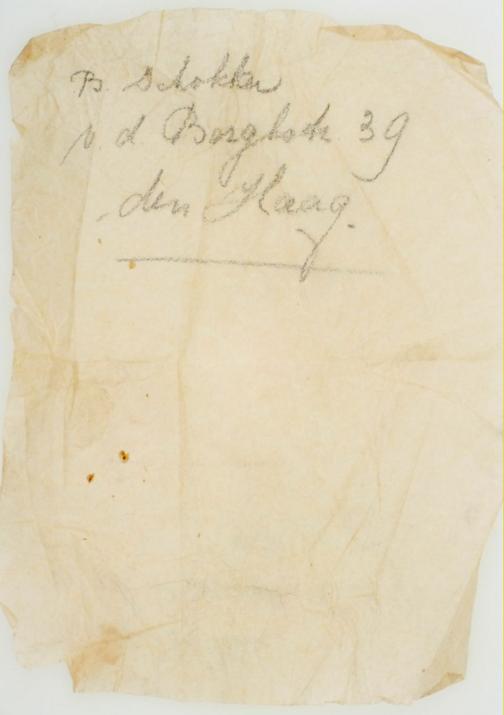 B. Schokker
v. d Borghstr. 39
den Haag.